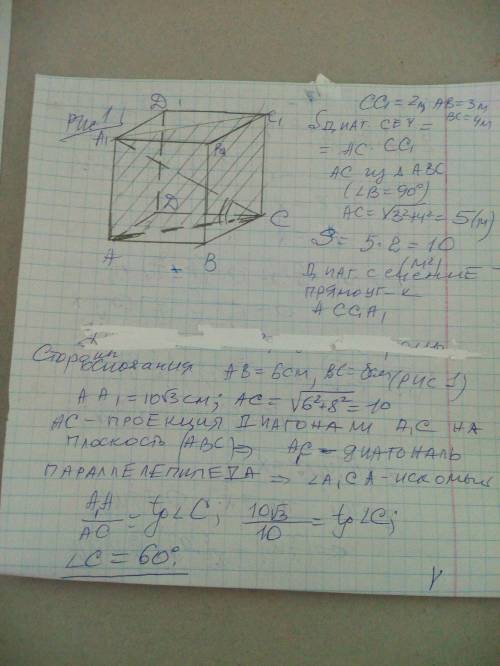 Рис 1
D1
C1
A1
B1
D
C
A
B
CC1 = 2м AB = 3м
BC = 4м
Sдиаг. сеч =
= AC · CC1
AC из Δ ABC
(∠B = 90°)
AC = √3²+4² = 5(м)
S = 5·2 = 10
(м²)
Диаг сечение -
прямоуг-к
ACC1A1
Стороны
основания AB = 6см, BC = 8см (рис 1)
AA1 = 10√3 см; AC = √6²+8² = 10
AC - проекция диагонали A1C на
плоскость (ABC) ⇒ A1C - диагональ
параллелепипеда ⇒ ∠A1CA - искомый
A1A/AC = tg∠C; 10√3/10 = tg∠C;
∠C = 60°.